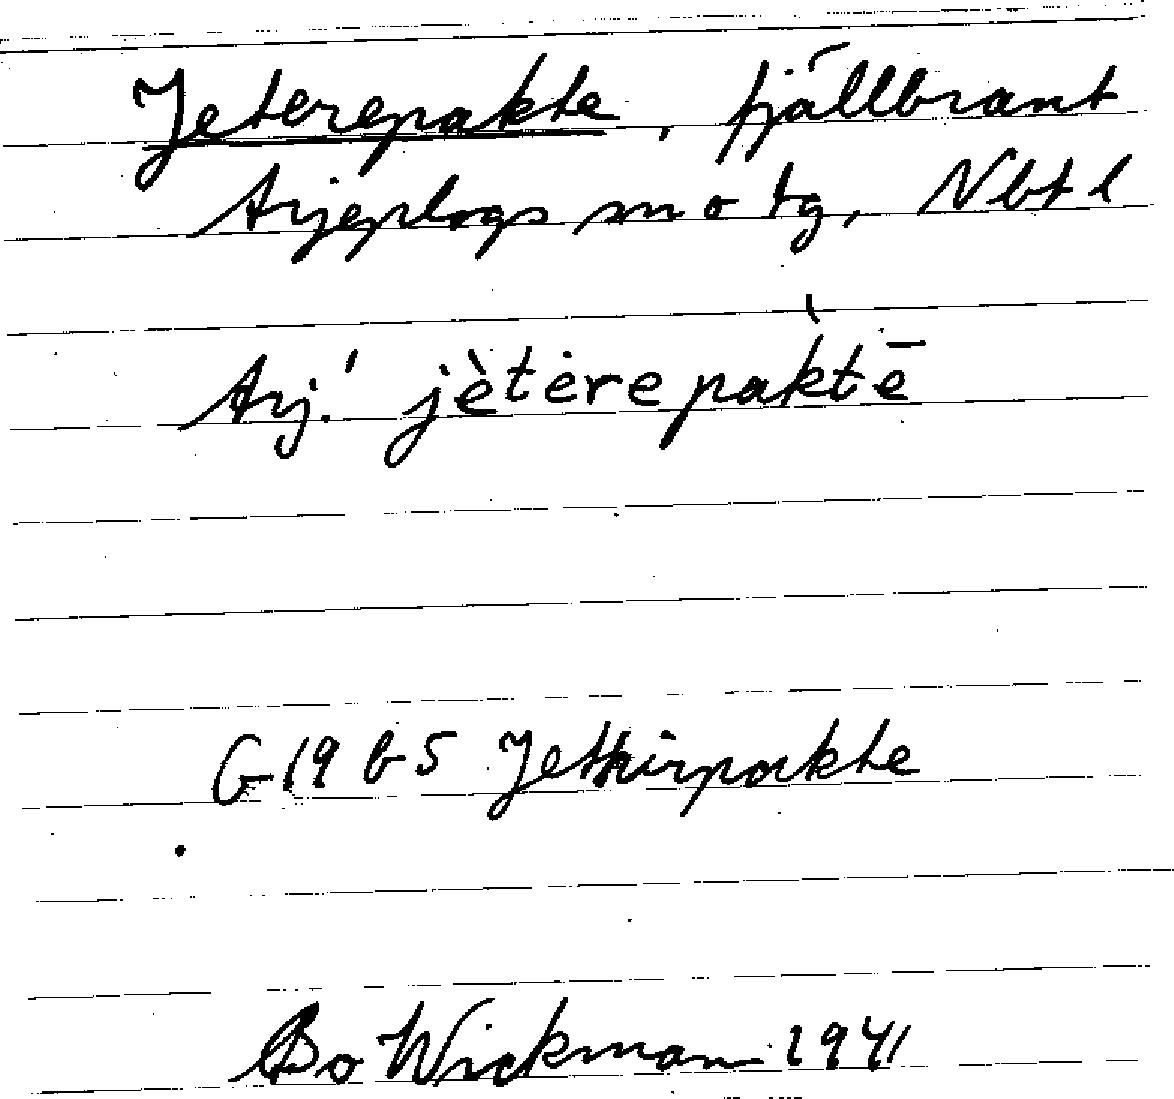 Jeterepakte, fjällbrant
Arjeplogs sn o tg, Nbtl
Arj. jètėrepàktē
G 19 b 5 Jetnirpakte
Bo Wickman 1941